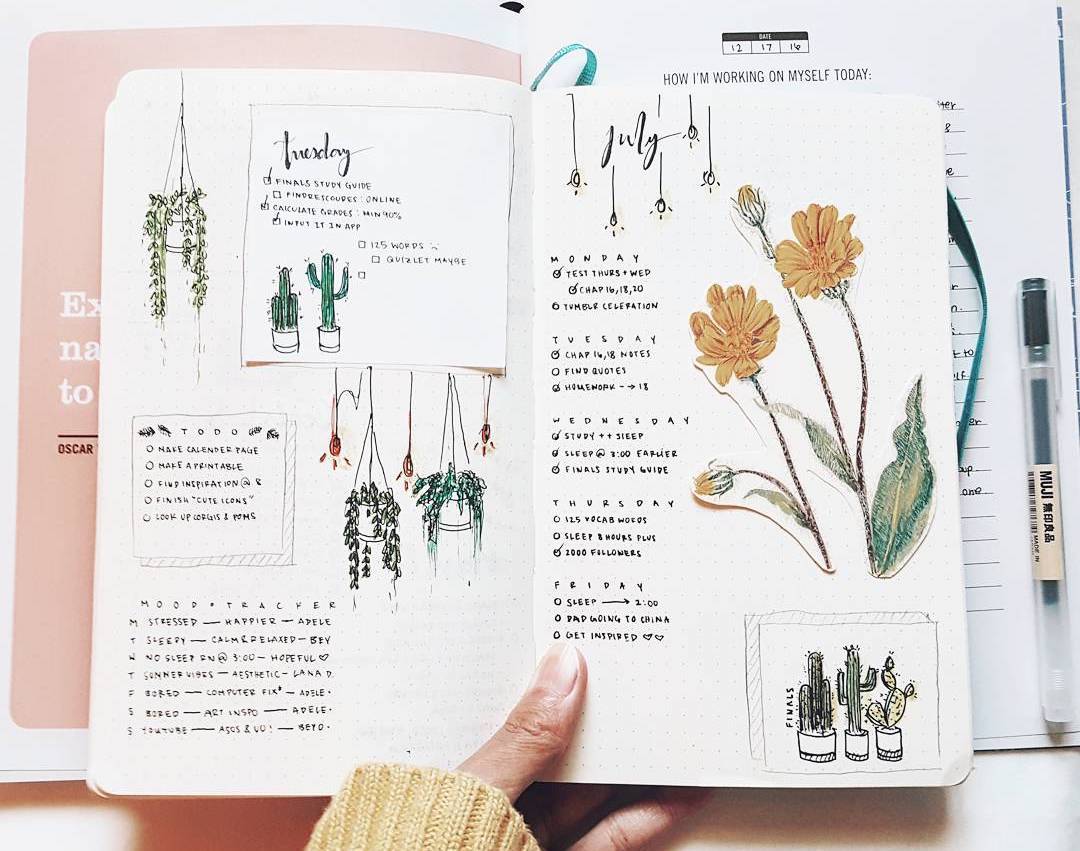 Ex
na
to
OSCAR
DATE
12 17 16
HOW I'M WORKING ON MYSELF TODAY:
Tuesday
FINALS STUDY GUIDE
FINDRESCOURES : ONLINE
CALCULATE GRADES : MIN 90%
INPUT IT IN APP
125 WORDS
QUIZLET MAYBE
TODO
MAKE CALENDER PAGE
MAKE A PRINTABLE
FIND INSPIRATION @ 8
FINISH "CUTE ICONS"
LOOK UP CORGIS & POMS
MOOD • TRACKER
M STRESSED — HAPPIER — ADELE
T SLEEPY — CALM & RELAXED — BEY
W NO SLEEP RN @ 3:00 — HOPEFUL ♡
T SUMMER VIBES — AESTHETIC — LANA D.
F BORED — COMPUTER FIX — ADELE •
S BORED — ART INSPO — ADELE •
S YOUTUBE — ASOS & UO! — BEYO •
July
MONDAY
TEST THURS + WED
CHAP 16,18,20
TUMBLR CELERATION
TUESDAY
CHAP 16,18 NOTES
FIND QUOTES
HOMEWORK --> 18
WEDNESDAY
STUDY ++ SLEEP
SLEEP @ 3:00 EARLIER
FINALS STUDY GUIDE
THURSDAY
125 VOCAB WORDS
SLEEP 8 HOURS PLUS
2000 FOLLOWERS
FRIDAY
SLEEP → 2:00
DAD GOING TO CHINA
GET INSPIRED ♡♡
FINALS
MUJ 無印良品
MADE IN